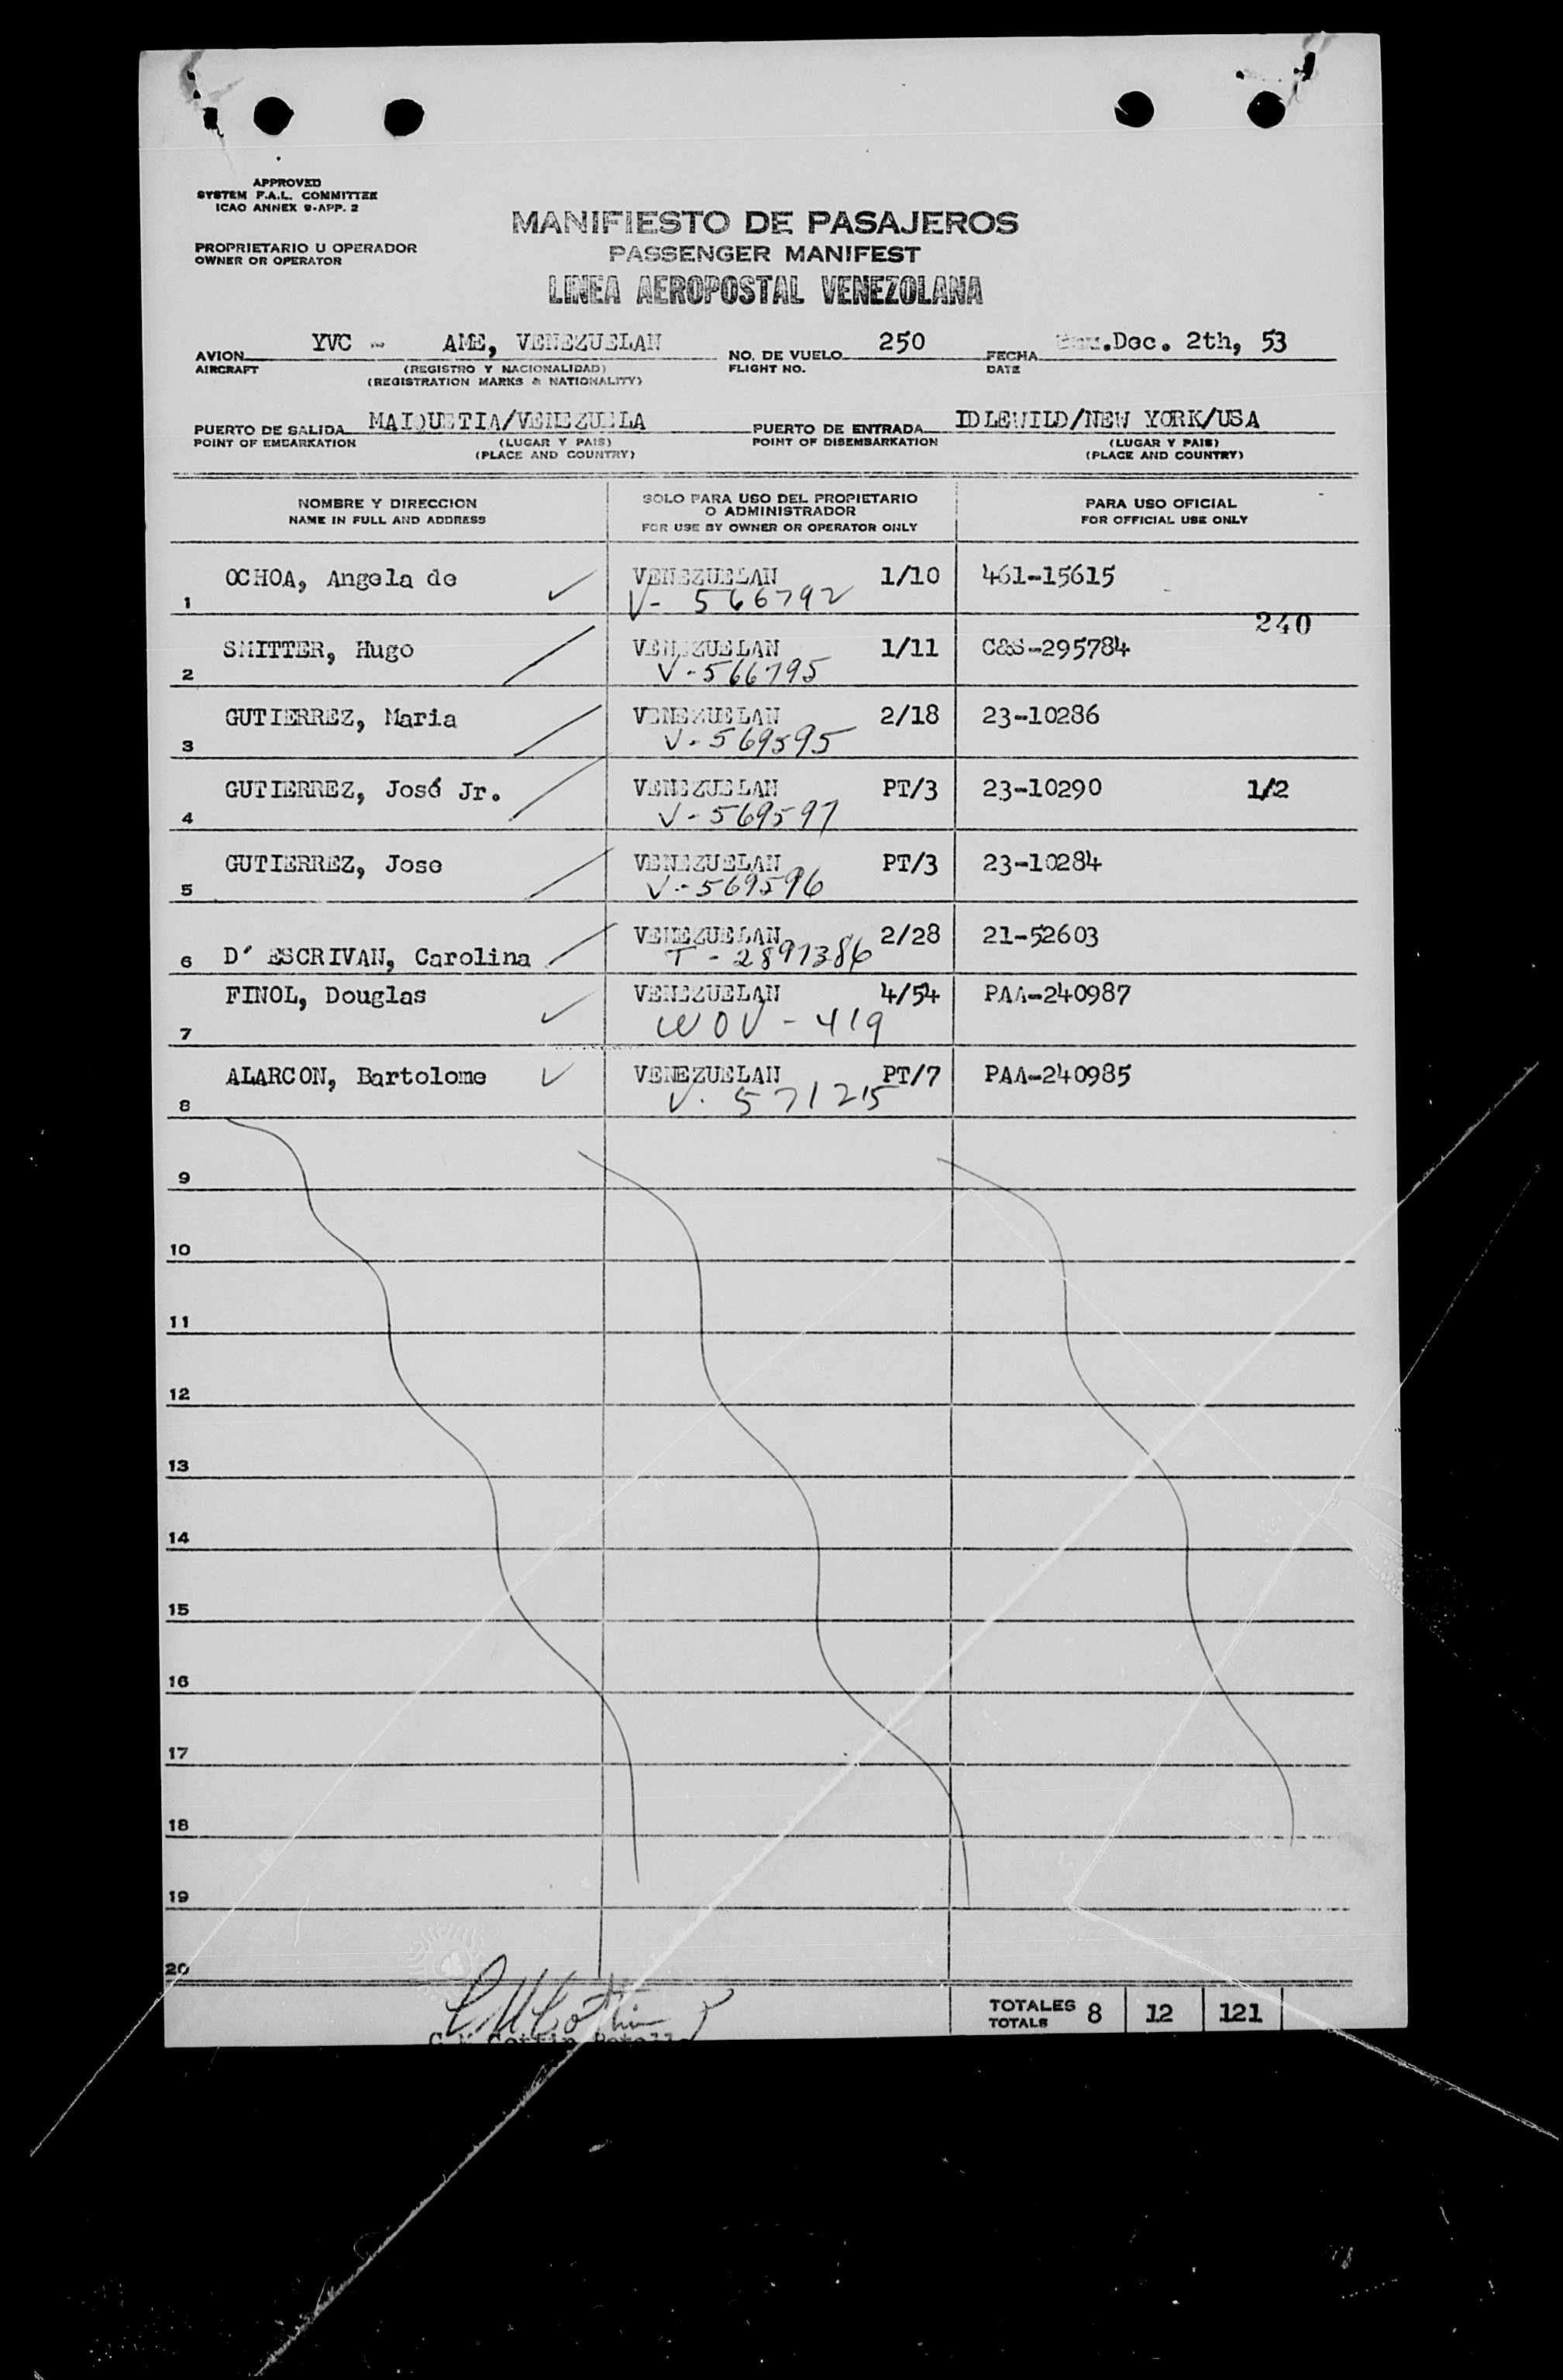 APPROVED
SYSTEM F.A.L. COMMITTEE
ICAO ANNEX 9-APP. 2
MANIFIESTO DE PASAJEROS
PROPRIETARIO U OPERADOR
OWNER OR OPERATOR
PASSENGER MANIFEST
LINEA AEROPOSTAL VENEZOLANA
AVION YVC - AME, VENEZUELAN NO. DE VUELO 250 FECHA Dec. 2th, 53
AIRCRAFT (REGISTRO Y NACIONALIDAD) FLIGHT NO. DATE
(REGISTRATION MARKS & NATIONALITY)
PUERTO DE SALIDA MAIQUETIA/VENEZUELA PUERTO DE ENTRADA IDLEWILD/NEW YORK/USA
POINT OF EMBARKATION (LUGAR Y PAIS) POINT OF DISEMBARKATION (LUGAR Y PAIS)
(PLACE AND COUNTRY) (PLACE AND COUNTRY)
NOMBRE Y DIRECCION
NAME IN FULL AND ADDRESS
SOLO PARA USO DEL PROPIETARIO
O ADMINISTRADOR
FOR USE BY OWNER OR OPERATOR ONLY
PARA USO OFICIAL
FOR OFFICIAL USE ONLY
1 OCHOA, Angela de ✓ VENEZUELAN 1/10 461-15615
V- 566792
240
2 SMITTER, Hugo VENEZUELAN 1/11 C&S-295784
V-566795
3 GUTIERREZ, Maria VENEZUELAN 2/18 23-10286
V-569595
4 GUTIERREZ, José Jr. VENEZUELAN PT/3 23-10290 1/2
V-569597
5 GUTIERREZ, Jose VENEZUELAN PT/3 23-10284
V-569596
6 D' ESCRIVAN, Carolina VENEZUELAN 2/28 21-52603
T-2897386
7 FINOL, Douglas ✓ VENEZUELAN 4/54 PAA-240987
WOV-419
8 ALARCON, Bartolome ✓ VENEZUELAN PT/7 PAA-240985
V. 571215
9
10
11
12
13
14
15
16
17
18
19
20
TOTALES 8 12 121
TOTALS